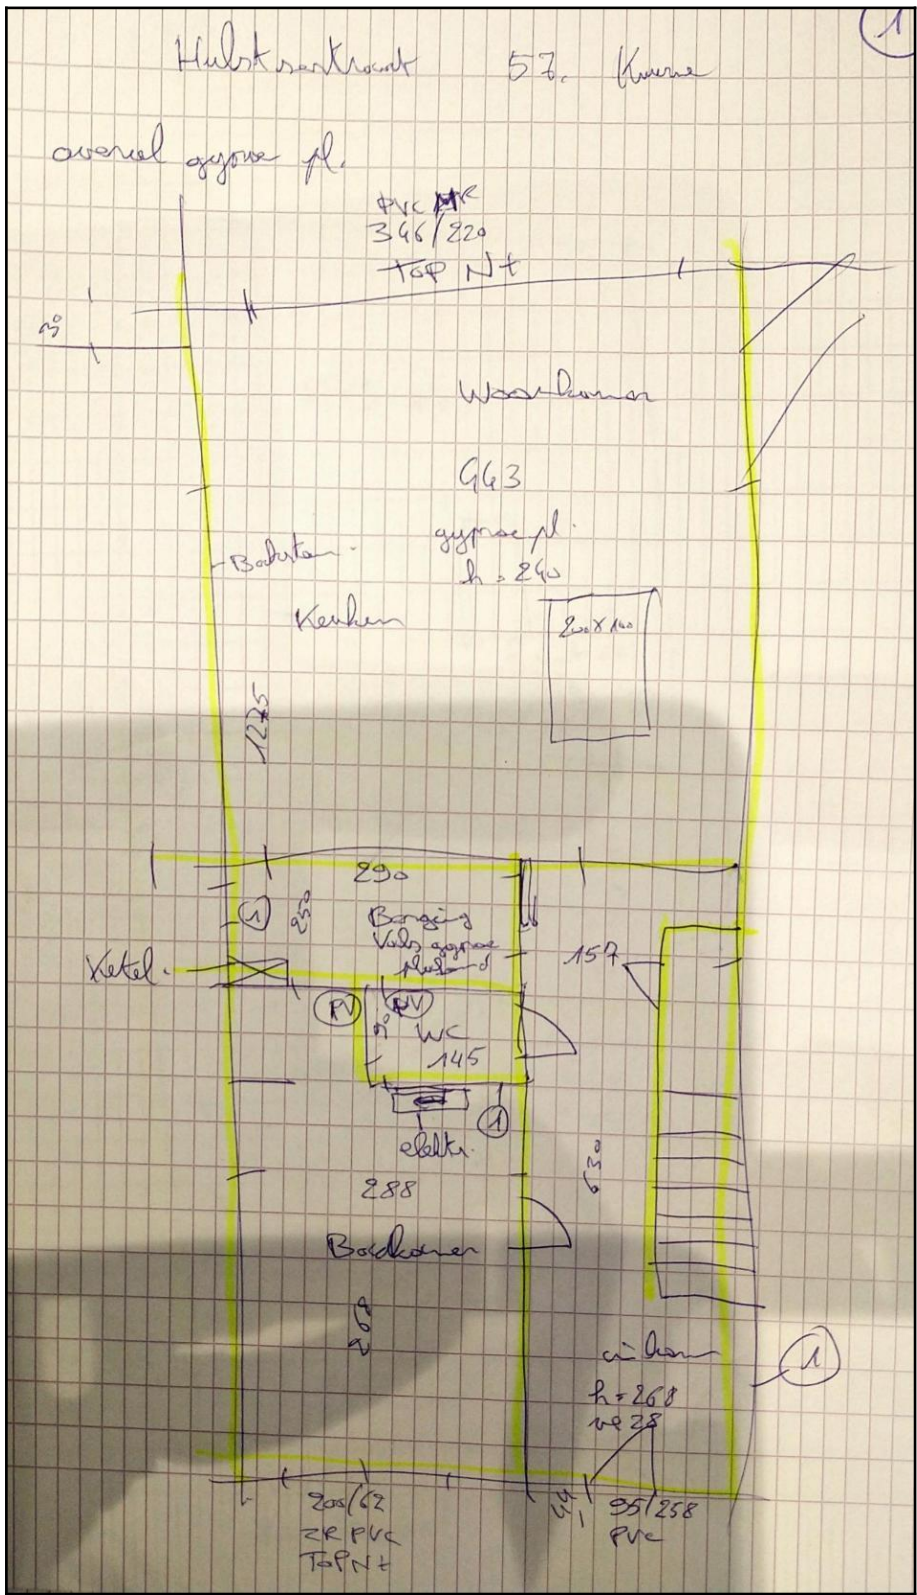 1
57. Kuurne
overal gyproc pl.
PVC
346/220
TOP N+
30
Woonkamer
443
gyproc pl.
h = 240
Baksteen
Keuken
200 x 140
1275
290
1
250
Berging
Vals gyproc
plafond
157
Ketel
RV
90
WC
145
1
elektr.
630
288
Badkamer
269
inkom
h = 268
1
200/62
ZR PVC
TOP N+
44
95/258
PVC